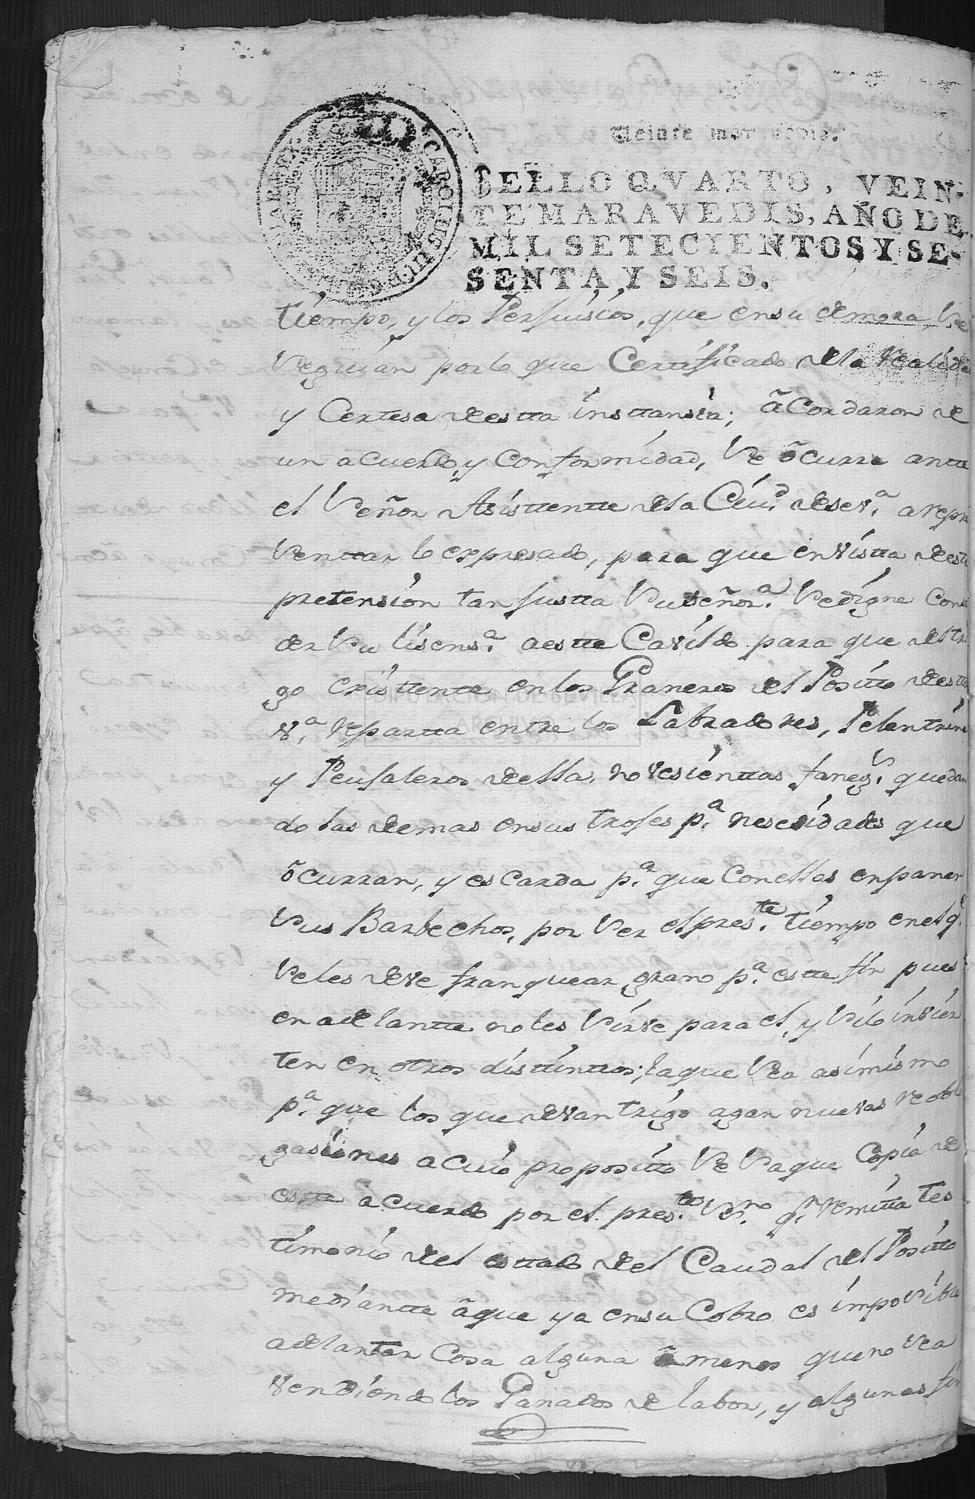 Veinte maravedis.
SELLO QVARTO, VEIN-
TE MARAVEDIS, AÑO DE
MIL SETECIENTOS Y SE-
SENTA Y SEIS.
CAROLUS III D G
tiempo, y los Perjuisios, que en su demora se
seguian por lo que Certificado de la realid
y Certesa de estta insttansia; acordaron de
un acuerdo, y conformidad, se ocurra ante
el señor Asisttentte de la Ciud. de sev.ª a repre
senttar lo expresado, para que en vistta de estta
pretension tan justta su señor.ª se digne conse
der su lisens.ª a estte Cavildo para que del tri
go existtente en los Graneros del Positto de estta
v.ª repartta entre los Labradores, Pelentrines
y Peujaleros de ella, novesienttas faneg.s quedan
do las demas en sus trojes p.ª nescesidades que
ocurran, y escarda p.ª que con ellas enpanen
sus Barbechos, por ser el pres.te tiempo en el q.e
se les deve franquear grano p.ª estte fin pues
en adelantte no les sirve para el, y si lo invier
ten en otros disttinttos; la que sea asimismo
p.ª que los que devan trigo agan nuevas obli
gasiones a cuio proposito se saque Copia de
estte acuerdo por el pres.te ss.no q.n remitta tes
timonio del esttado del Caudal del Positto
mediantte a que ya en su Cobro es imposible
adelantar Cosa alguna a menos que no sea
vendiendo los Ganados de labor, y algunas fin
DIPUTACIÓN DE SEVILLA
ARCHIVO